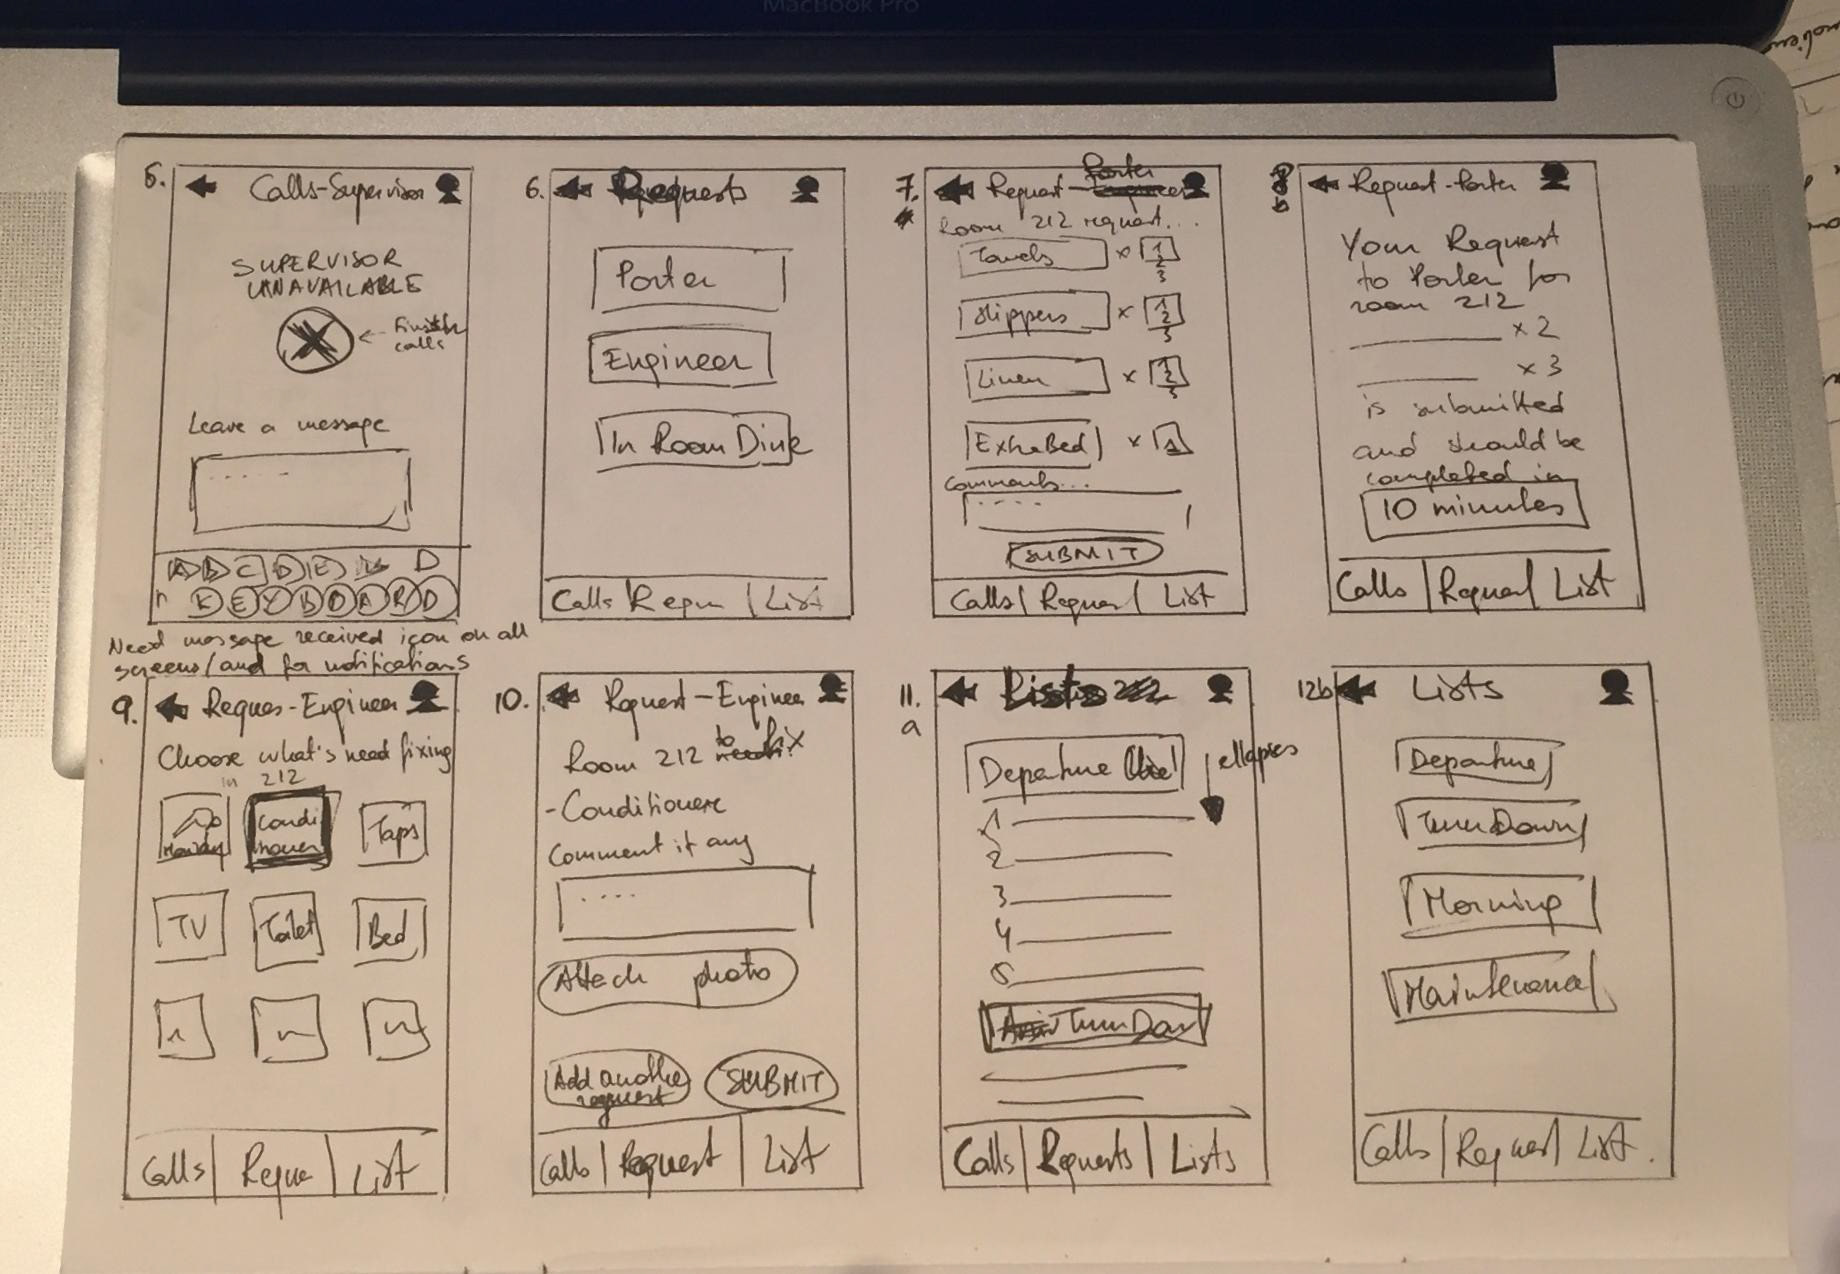 MacBook Pro
5.
Calls-Supervisor
SUPERVISOR
UNAVAILABLE
Finish
calls
Leave a message
.....
K E Y B O A R D
Need message received icon on all
screens/and for notifications
6.
Requests
Porter
Engineer
In Room Dine
Calls | Requ | List
7.
Request - Porter
Room 212 request...
Towels x 1 2 3
Slippers x 1 2 3
Linen x 1 2 3
ExtraBed x 1
Comments...
....
SUBMIT
Calls | Request | List
Request-Porter
Your Request
to Porter for
room 212
x 2
x 3
is submitted
and should be
completed in
10 minutes
Calls | Request | List
9.
Reques-Engineer
Choose what's need fixing
in 212
Condi
tioner
Taps
TV
Toilet
Bed
Calls | Reque | List
10.
Request-Engineer
Room 212 to fix
-Conditionere
Comment if any
....
Attach photo
Add another
request
SUBMIT
Calls | Request | List
11.
a
Lists
Departure
ellapses
1
2
3
4
5
Turn Dow
Calls | Requests | Lists
12b
Lists
Departure
Turn Down
Morning
Maintenance
Calls | Request | List.